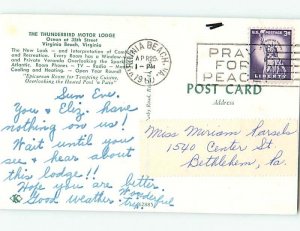 THE THUNDERBIRD MOTOR LODGE
Ocean at 35th Street
Virginia Beach, Virginia
The New Look — and Interpretation of Comfort
and Recreation. Every Room has a Window
and Private Veranda Overlooking the
Atlantic. Room Phones — TV — Radio —
Heating and Cooling — Open Year Round
"Epicurean Room for Tempting Cuisine,
Overlooking the Heated Pool &
VIRGINIA BEACH, VA.
APR 20
PM
PRAY
FOR
PEACE
U.S. POSTAGE 3¢
LIBERTY
POST CARD
Address
Sun Eve.
You & Eliz. have
nothing on us!
Wait until you
see & hear about
this lodge!!
Hope you are better.
Good weather. Wonderful
trip!
Miss Miriam
1540 Center St.
Bethlehem, Pa.